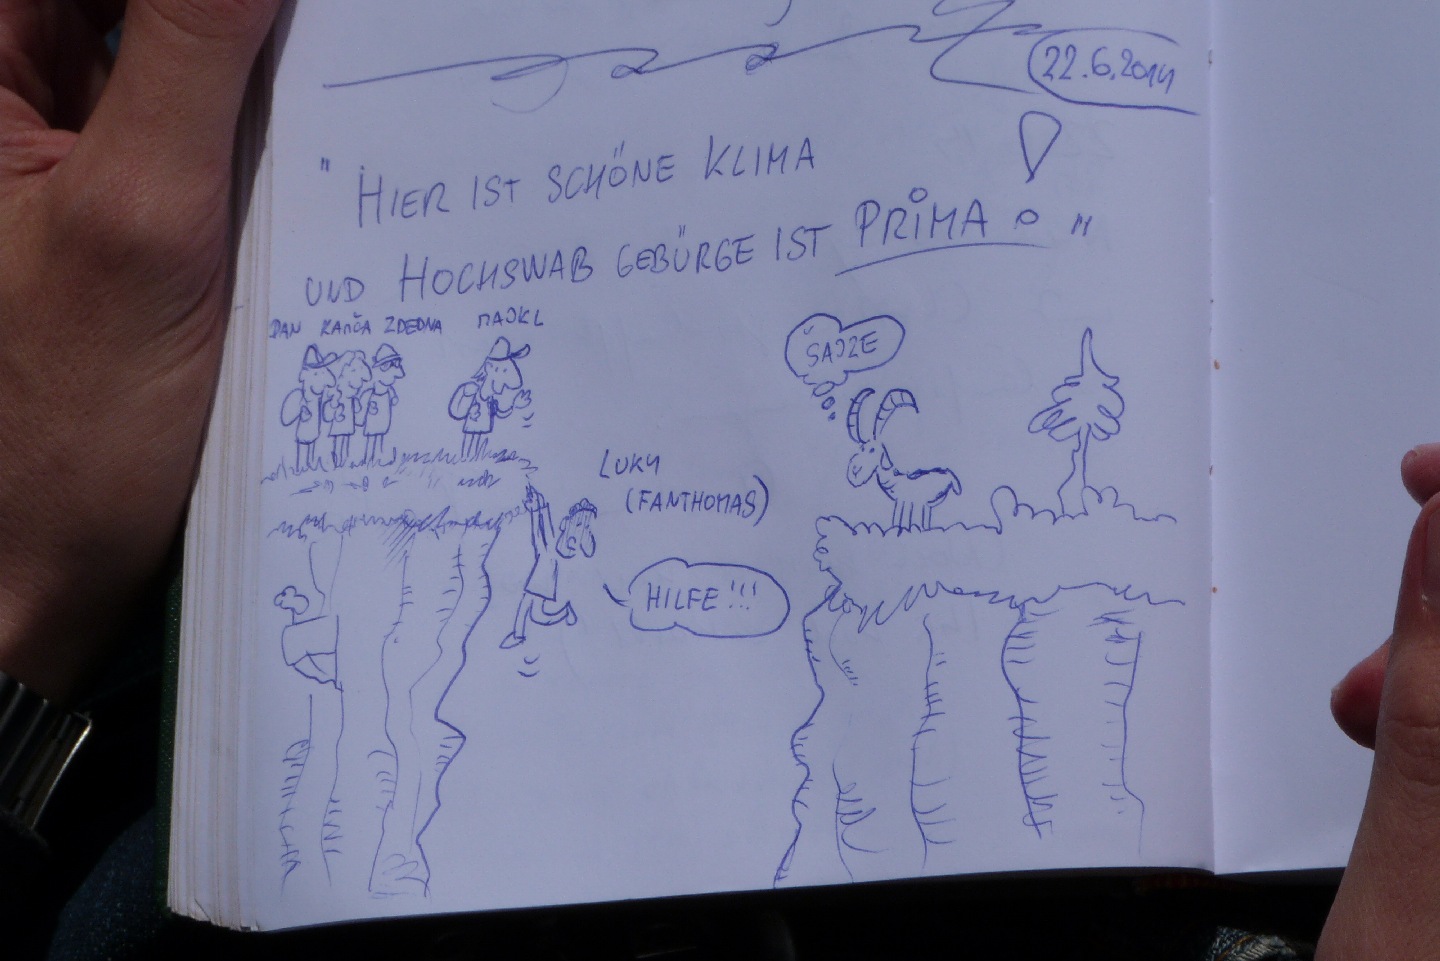 22.6.2014
" HIER IST SCHÖNE KLIMA
UND HOCHSWAB GEBÜRGE IST PRIMA ! "
DAN KAMČA ZDEDNA MAJKL
ŠAJZE
LUKY
(FANTHOMAS)
HILFE!!!